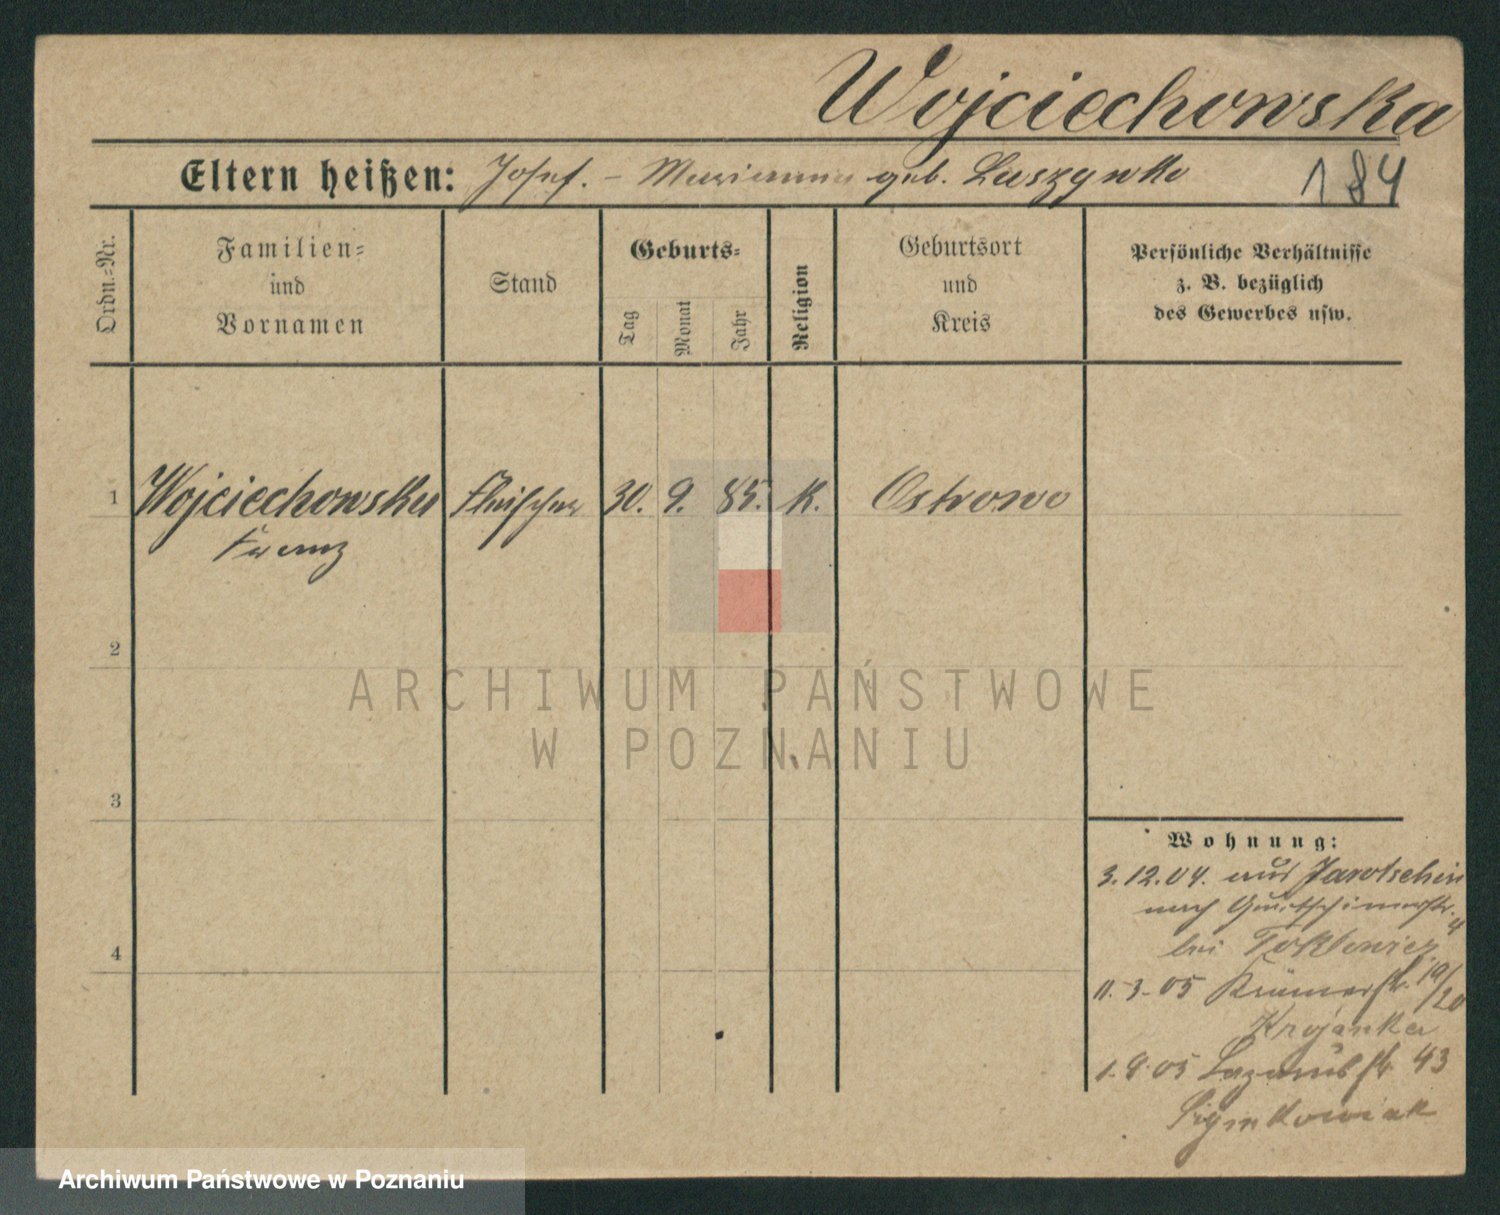 Wojciechowska
Eltern heißen: Josef. – Marianna geb. Laszynska
184
Ordn.-Nr.
Familien-
und
Vornamen
Stand
Geburts-
Tag
Monat
Jahr
Religion
Geburtsort
und
Kreis
Persönliche Verhältnisse
z. B. bezüglich
des Gewerbes usw.
1 Wojciechowska Fleischer 30. 9. 85. K. Ostrowo
Franz
2
ARCHIWUM PAŃSTWOWE
W POZNANIU
3
Wohnung:
3.12.04. aus Jarotschin
nach
4
bei
11.3.05 Krämerstr. 19/20
Krojanker
1.9.05 Lazarusstr 43
Szymkowiak
Archiwum Państwowe w Poznaniu